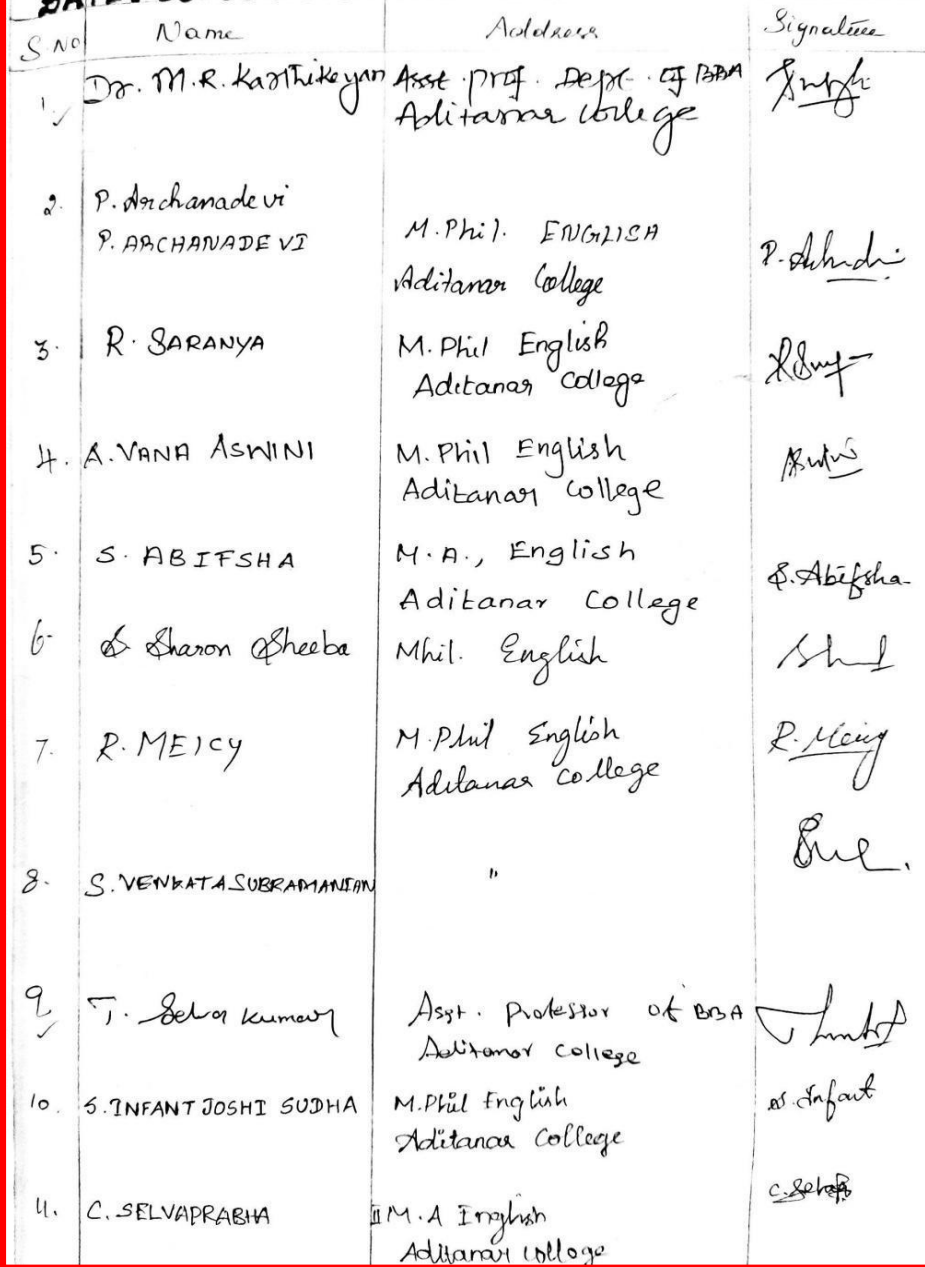 S.NO Name Address Signature
1. Dr. M.R. Karthikeyan Asst. prof. Dept. of BBA
Aditanar College
2. P. Archanadevi
P. ARCHANADEVI M.Phil. ENGLISH
Aditanar College
3. R. SARANYA M.Phil English
Aditanar College
4. A. VANA ASWINI M.Phil English
Aditanar College
5. S. ABIFSHA M.A., English S. Abifsha
Aditanar College
6. S Sharon Sheeba Mhil. English
7. R. MEICY M.Phil English R. Meicy
Aditanar College
8. S. VENKATASUBRAMANIAN "
9. T. Selva kumar Asst. Professor of BBA
Aditanar College
10. S. INFANT JOSHI SUDHA M.Phil English S. Infant
Aditanar College
11. C. SELVAPRABHA II M.A English
Aditanar College